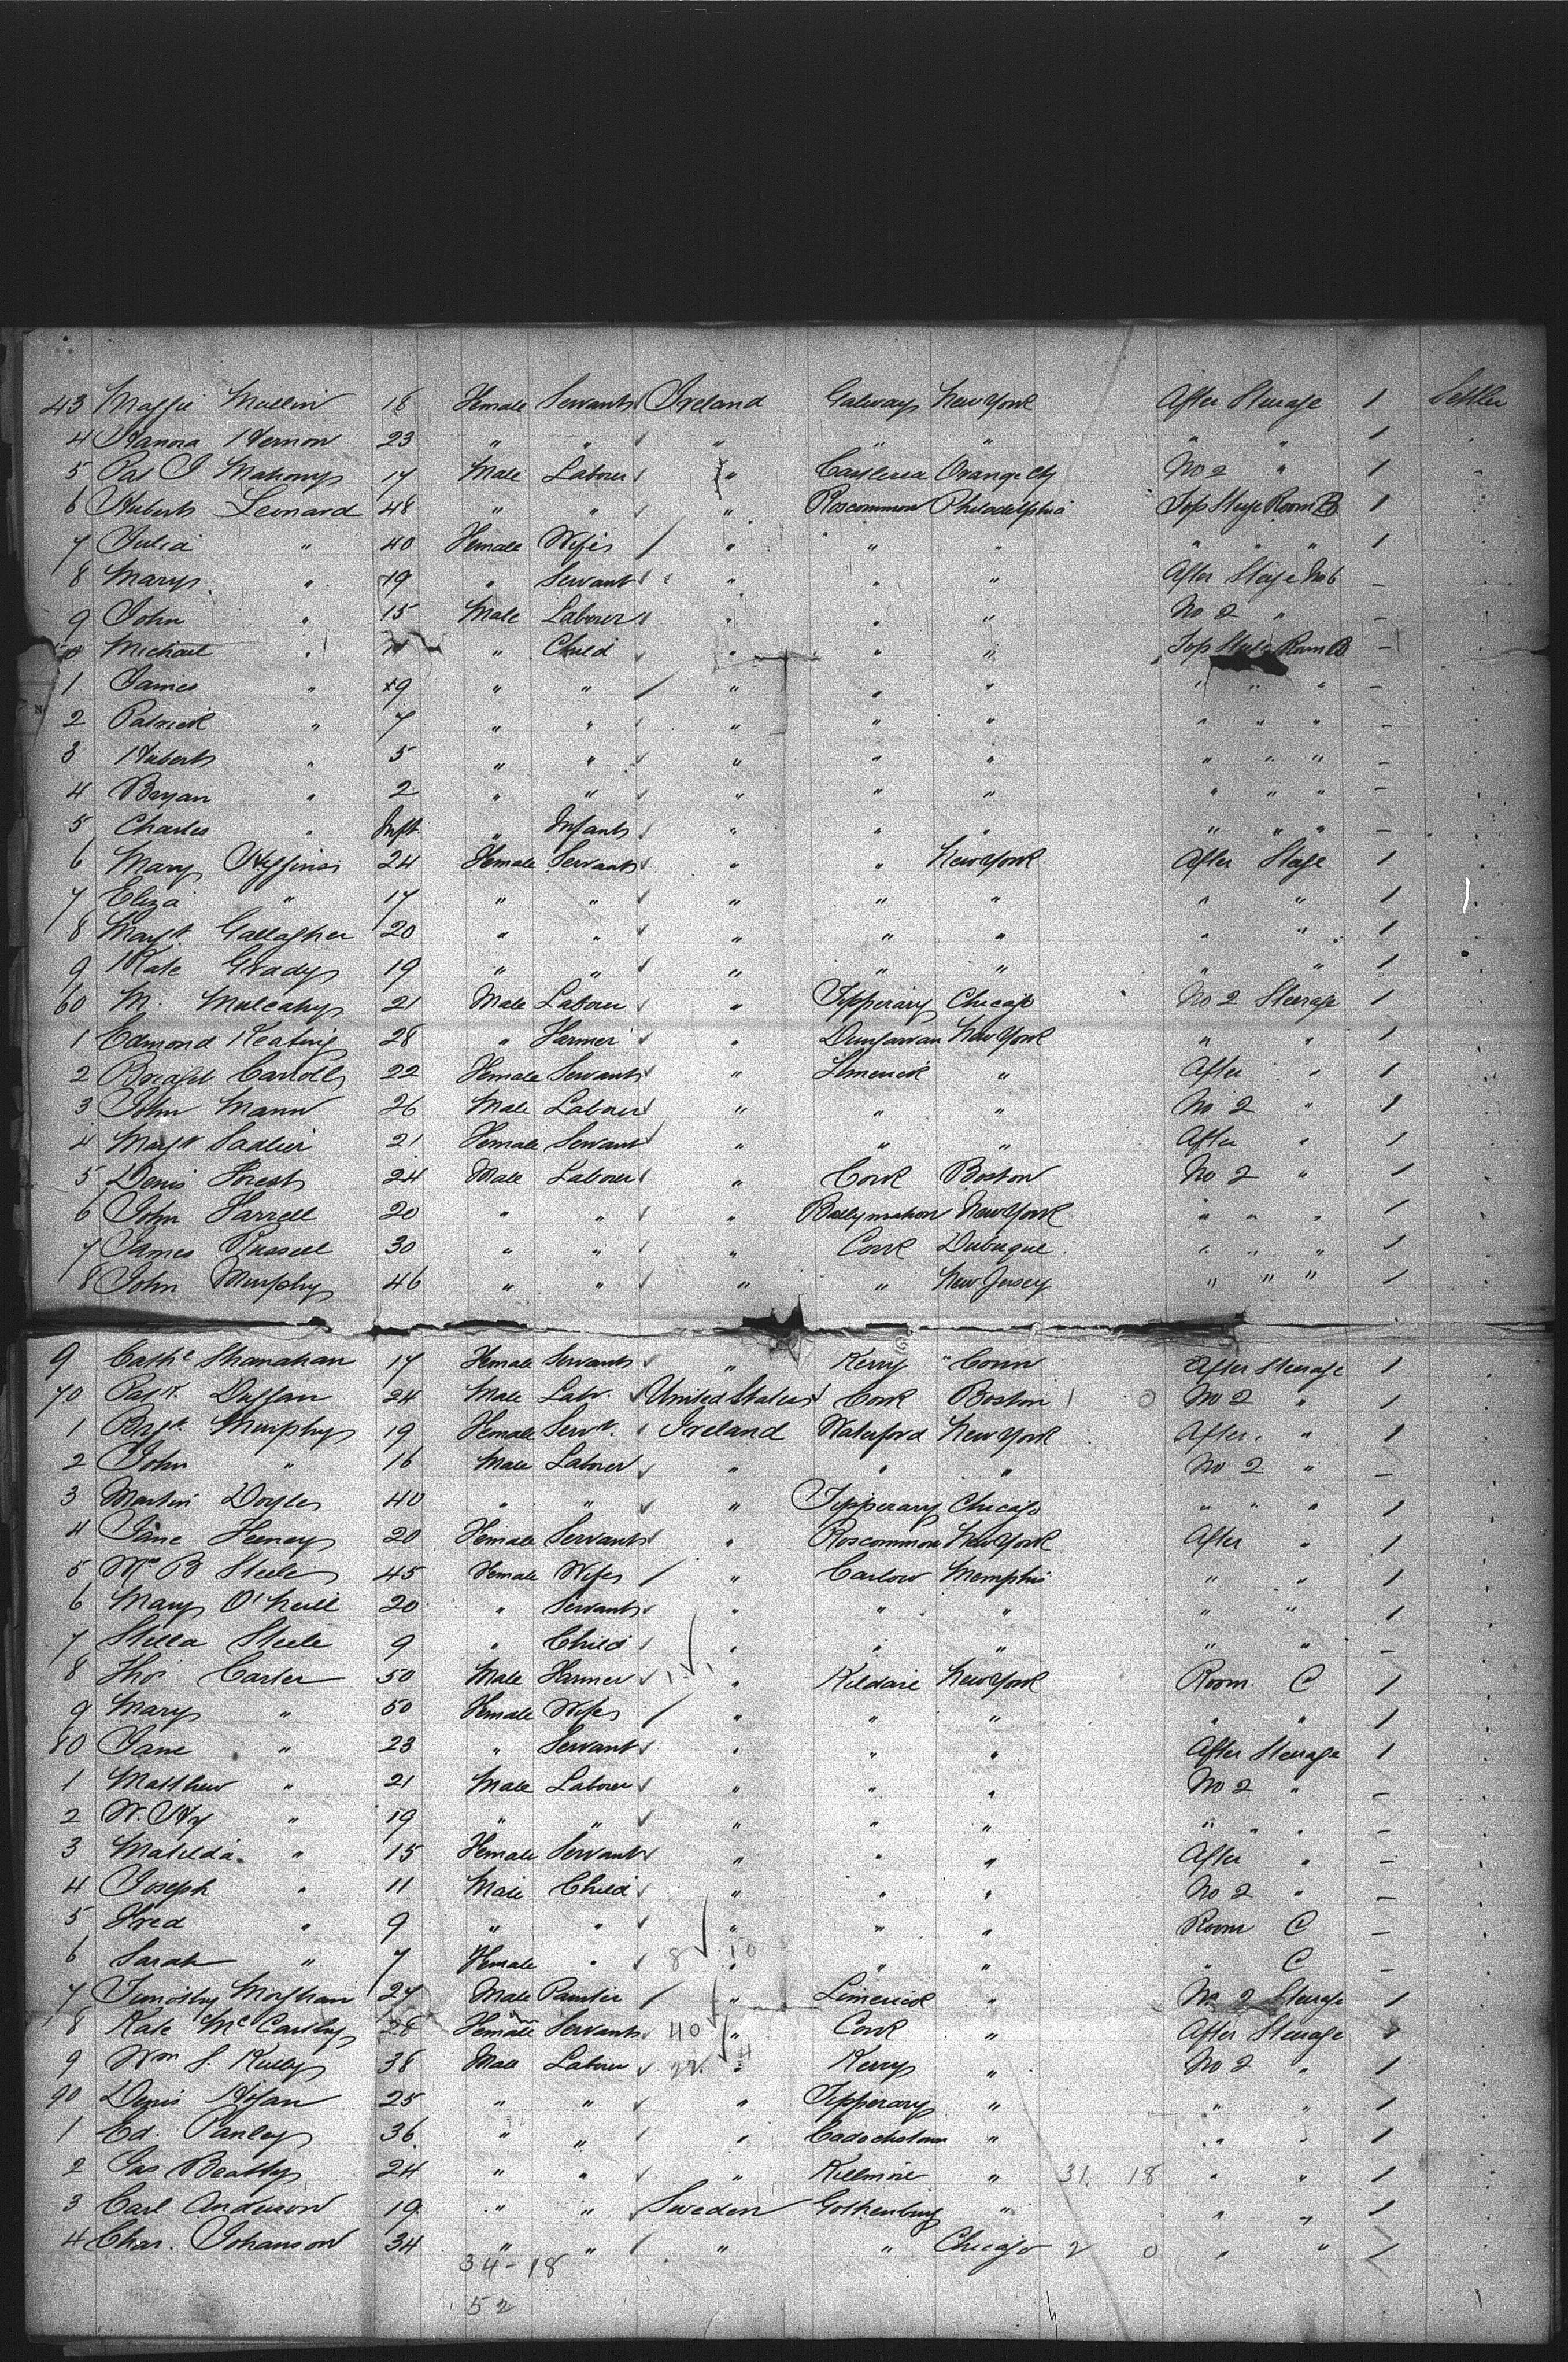 43 Maggie Mallin 18 Female Servant Ireland Galway New York After Steerage 1 Settler
4 Hanora Hernon 23 " " " " " " " 1
5 Pat J Mahony 17 Male Laborer " Castlerea Orange Cty No 2 " 1
6 Hubert Leonard 48 " " " Roscommon Philadelphia Top Stege Room B 1
7 Julia " 40 Female Wife " " " " " " 1
8 Mary " 19 " Servant " " " After Stege No 6 –
9 John " 15 Male Laborer " " " No 2 " –
50 Michael " " Child " " " Top Stege Room B –
1 James " 9 " " " " " " " " –
2 Patrick " 7 " " " " " " " " –
3 Hubert " 5 " " " " " " " " –
4 Bryan " 2 " " " " " " " " –
5 Charles " Inft. " Infant " " " " " " –
6 Mary Higgins 24 Female Servant " " New York After Stege 1
7 Eliza " 17 " " " " " " " 1
8 Margt. Gallagher 20 " " " " " " " 1
9 Kate Grady 19 " " " " " " " 1
60 M. Mulcahy 21 Male Laborer " Tipperary Chicago No 2 Steerage 1
1 Edmond Keating 28 " Farmer " Dungarvan New York " " 1
2 Bridget Carroll 22 Female Servant " Limerick " After " 1
3 John Mann 26 Male Laborer " " " No 2 " 1
4 Margt Sadlier 21 Female Servant " " " After " 1
5 Denis Forest 24 Male Laborer " Cork Boston No 2 " 1
6 John Farrell 20 " " " Ballymahon New York " " " 1
7 James Russell 30 " " " Cork Dubuque " " " 1
8 John Murphy 46 " " " " New Jersey " " " 1
9 Cathe Shanahan 17 Female Servant " Kerry " Conn After Steerage 1
70 Patk. Duggan 24 Male Labr. United States Cork Boston 0 No 2 " 1
1 Brgt. Murphy 19 Female Servt. Ireland Waterford New York After " 1
2 John " 16 Male Laborer " " " No 2 " –
3 Martin Doyle 40 " " " Tipperary Chicago " " " 1
4 Jane Feeney 20 Female Servant " Roscommon New York After " 1
5 Mrs B Steele 45 Female Wife " Carlow Memphis " " 1
6 Mary O'Neill 20 " Servant " " " " " 1
7 Stella Steele 9 " Child " " " " " –
8 Thos Carter 50 Male Farmer " Kildare New York Room C 1
9 Mary " 50 Female Wife " " " " " 1
80 Jane " 23 " Servant " " " After Steerage 1
1 Matthew " 21 Male Laborer " " " No 2 " –
2 W. Hy " 19 " " " " " " " " –
3 Matilda " 15 Female Servant " " " After " –
4 Joseph " 11 Male Child " " " No 2 " –
5 Fred " 9 " " " " " Room C –
6 Sarah " 7 Female " 8 10 " " " " C –
7 Timothy Moghan 27 Male Painter " Limerick " No 2 Steerage 1
8 Kate McCarthy 28 Female Servant 40 " Cork " After Steerage 1
9 Wm S. Kelly 38 Male Laborer 22 " Kerry " No 2 " 1
90 Denis Hogan 25 " " " Tipperary " " " 1
1 Ed. Panley 36 " " " " " " 1
2 Jas Beatty 24 " " " Killmore " 31 18 " " 1
3 Carl Anderson 19 " " Sweden Gothenburg " " " 1
4 Char. Johanson 34 " " " " Chicago 2 0 " " 1
34-18
52